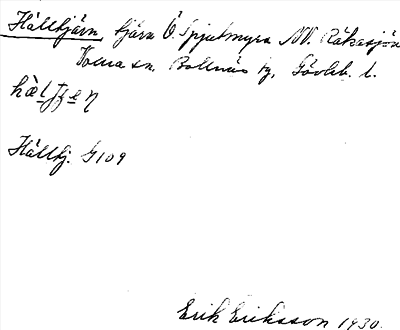 Hälltjärn tjärn Ö. Spjutmyra NV. Råkasjön
Voxna sn. Bollnäs tg, Gävleb. l.
Hälltj. G109
Erik Eriksson 1930.